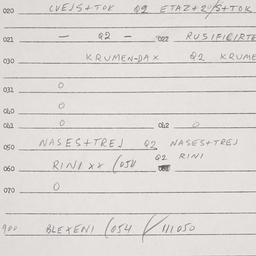 020 CVEJS+TOK Q2 ETAZ+2º/S+TOK
021 — Q2 — 022 RUSIFICIRTE
030 KRUMEN-DAX Q2 KRUME
031 0
040 0
041 0 042 0
050 NASES+TREJ Q2 NASES+TREJ
060 RINI XX (054 Q2 RINI
070 0
900 BLEXENI (054 / 111050